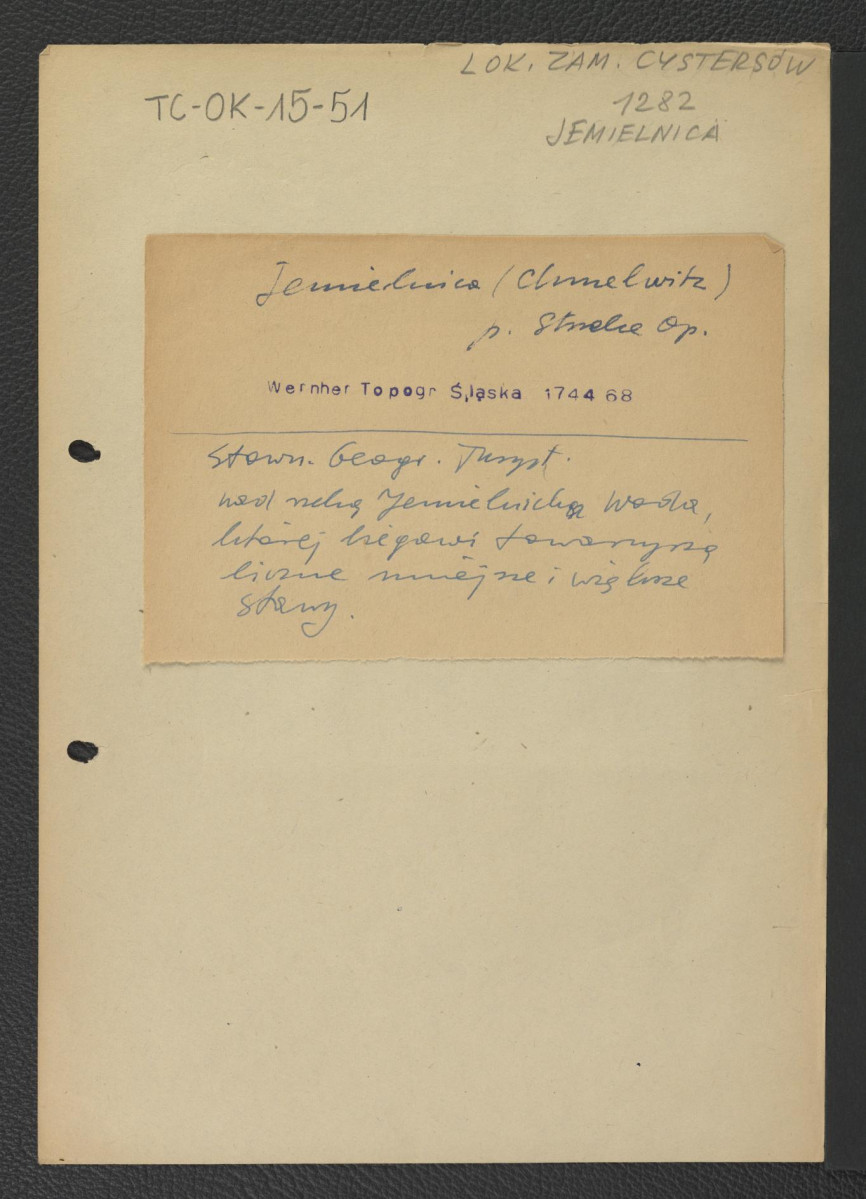 LOK. ZAM. CYSTERSÓW
TC-OK-15-51
1282
JEMIELNICA
Jemielnica (Chmelwitz)
p. Strzelce Op.
Wernher Topogr Śląska 1744 68
Słown. Geogr. Turyst.
nad rzeką Jemielnicką Woda,
której biegowi towarzyszą
liczne mniejsze i większe
stawy.